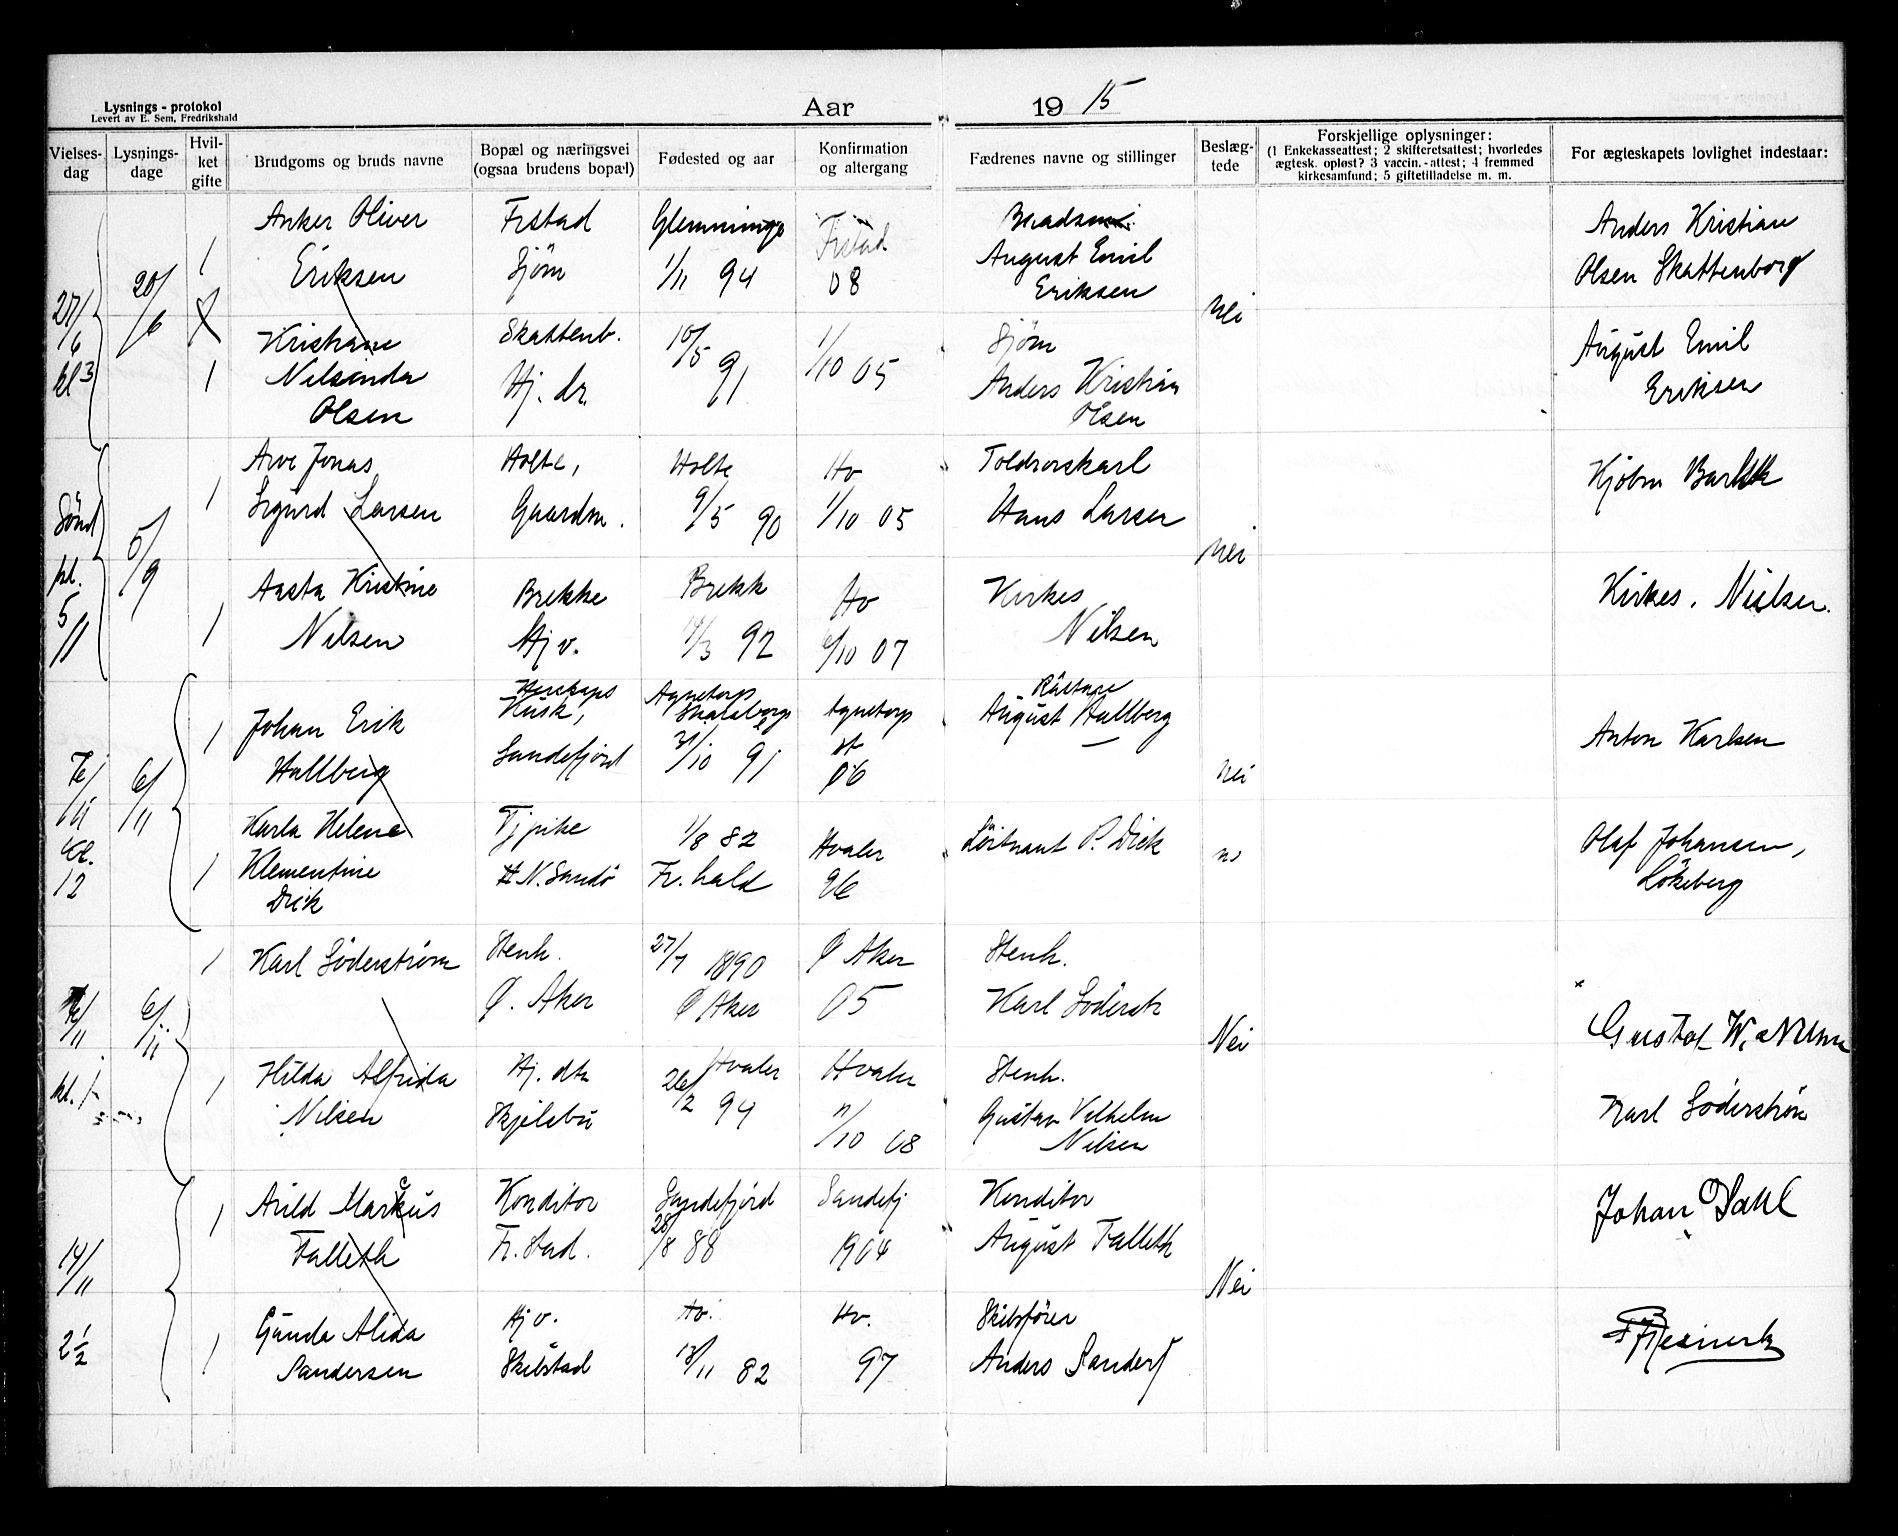 Lysnings - protokol
Levert av E. Sem, Fredrikshald
Aar 1915
Vielses-dag
Lysnings-dage
Hvil-ket gifte
Brudgoms og bruds navne
Bopæl og næringsvei (ogsaa brudens bopæl)
Fødested og aar
Konfirmation og altergang
Fædrenes navne og stillinger
Beslæg-tede
Forskjellige oplysninger:
(1 Enkekasseattest; 2 skifteretsattest; hvorledes
ægtesk. opløst? 3 vaccin.-attest; 4 fremmed
kirkesamfund; 5 giftetilladelse m. m.
For ægteskapets lovlighet indestaar:
27/6 kl 3
20/6
1
Anker Oliver
Eriksen
Frstad
Sjøm
Glemminge
1/11 94
Frstad
08
August Emil
Eriksen
nei
Anders Kristian
Olsen Skattenborg
1
Kristiane
Nilsinda
Olsen
Skattenb.
Hj. dr.
10/5 91
1/10 05
Sjøm
Anders Kristian
Olsen
August Emil
Eriksen
Sønd kl. 5
5/9
1
Arve Jonas
Sigurd Larsen
Holte,
Gaardm.
Holte
9/5 90
Hv
1/10 05
Toldrorskarl
Hans Larsen
nei
1
Aasta Kristine
Nilsen
Brekke
Hj v.
Brekk
/3 92
Hv
6/10 07
Kirkes
Nilsen
Kirkes. Nielsen.
7/11 kl. 12
6/11
1
Johan Erik
Hallberg
Kusk,
Sandefjord
Agnetorp
31/10 91
Agnetorp
06
August Hallberg
nei
Anton Karlsen
1
Karla Helene
Klementine
Dick
Tjpike
N. Sandö
1/8 82
Fr. hald
Hvaler
96
Löitnant P. Dick
Olaf Johansen,
Lökeberg
/11 kl. 1
6/11
1
Karl Söderström
Stenh.
Ø. Aker
27/7 1890
Ø Aker
Ø Aker
05
Stenh.
Karl Söderst
Nei
Gustaf W. Nilsen
1
Hilda Alfrida
Nilsen
Hj. dtr
Skjelsbu
Hvaler
26/2 94
Hvaler
/10 08
Stenh.
Gustav Vilhelm
Nilsen
Karl Söderström
14/11
2 1/2
1
Arild Marcus
Falleth
Konditor
Fr. Stad.
Sandefjord
28/8 88
Sandefj
1904
Konditor
August Falleth
Nei
Johan Dahl
1
Gunda Alida
Sandersen
Hj v.
Skibstad
Hv.
13/11 82
Hv.
97
Skibsförer
Anders Sanders